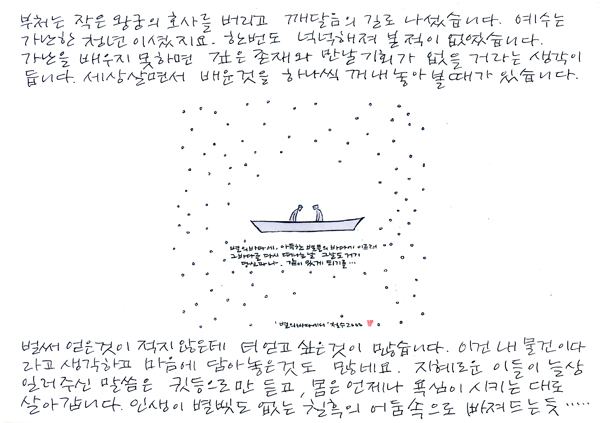 부처는 작은 왕궁의 호사를 버리고 깨달음의 길로 나섰습니다. 예수는
가난한 청년이셨지요. 한번도 넉넉해져 본적이 없었습니다.
가난을 배우지 못하면 깊은 존재와 만날 기회가 없을 거라는 생각이
듭니다. 세상살면서 배운것을 하나씩 꺼내놓아 볼때가 있습니다.
별의바다에, 아득한 별들의 바다가 이르러
그바다를 다시 떠나는 날 그날도 거기
당신과 나. 같이 있게 되기를…
'별의바다에서' 철수 2000
벌써 얻은것이 적지않은데 더 얻고 싶은것이 많습니다. 이건 내 물건이다
라고 생각하고 마음에 담아놓은것도 많네요. 지혜로운 이들이 늘상
일러주신 말씀은 귓등으로만 듣고, 몸은 언제나 욕심이 시키는 대로
살아갑니다. 인생이 별빛도 없는 칠흑의 어둠속으로 빠져드는듯‥‥‥